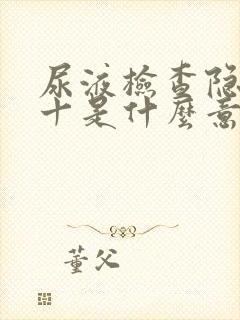 尿液檢查隐
十是什麼意
董父